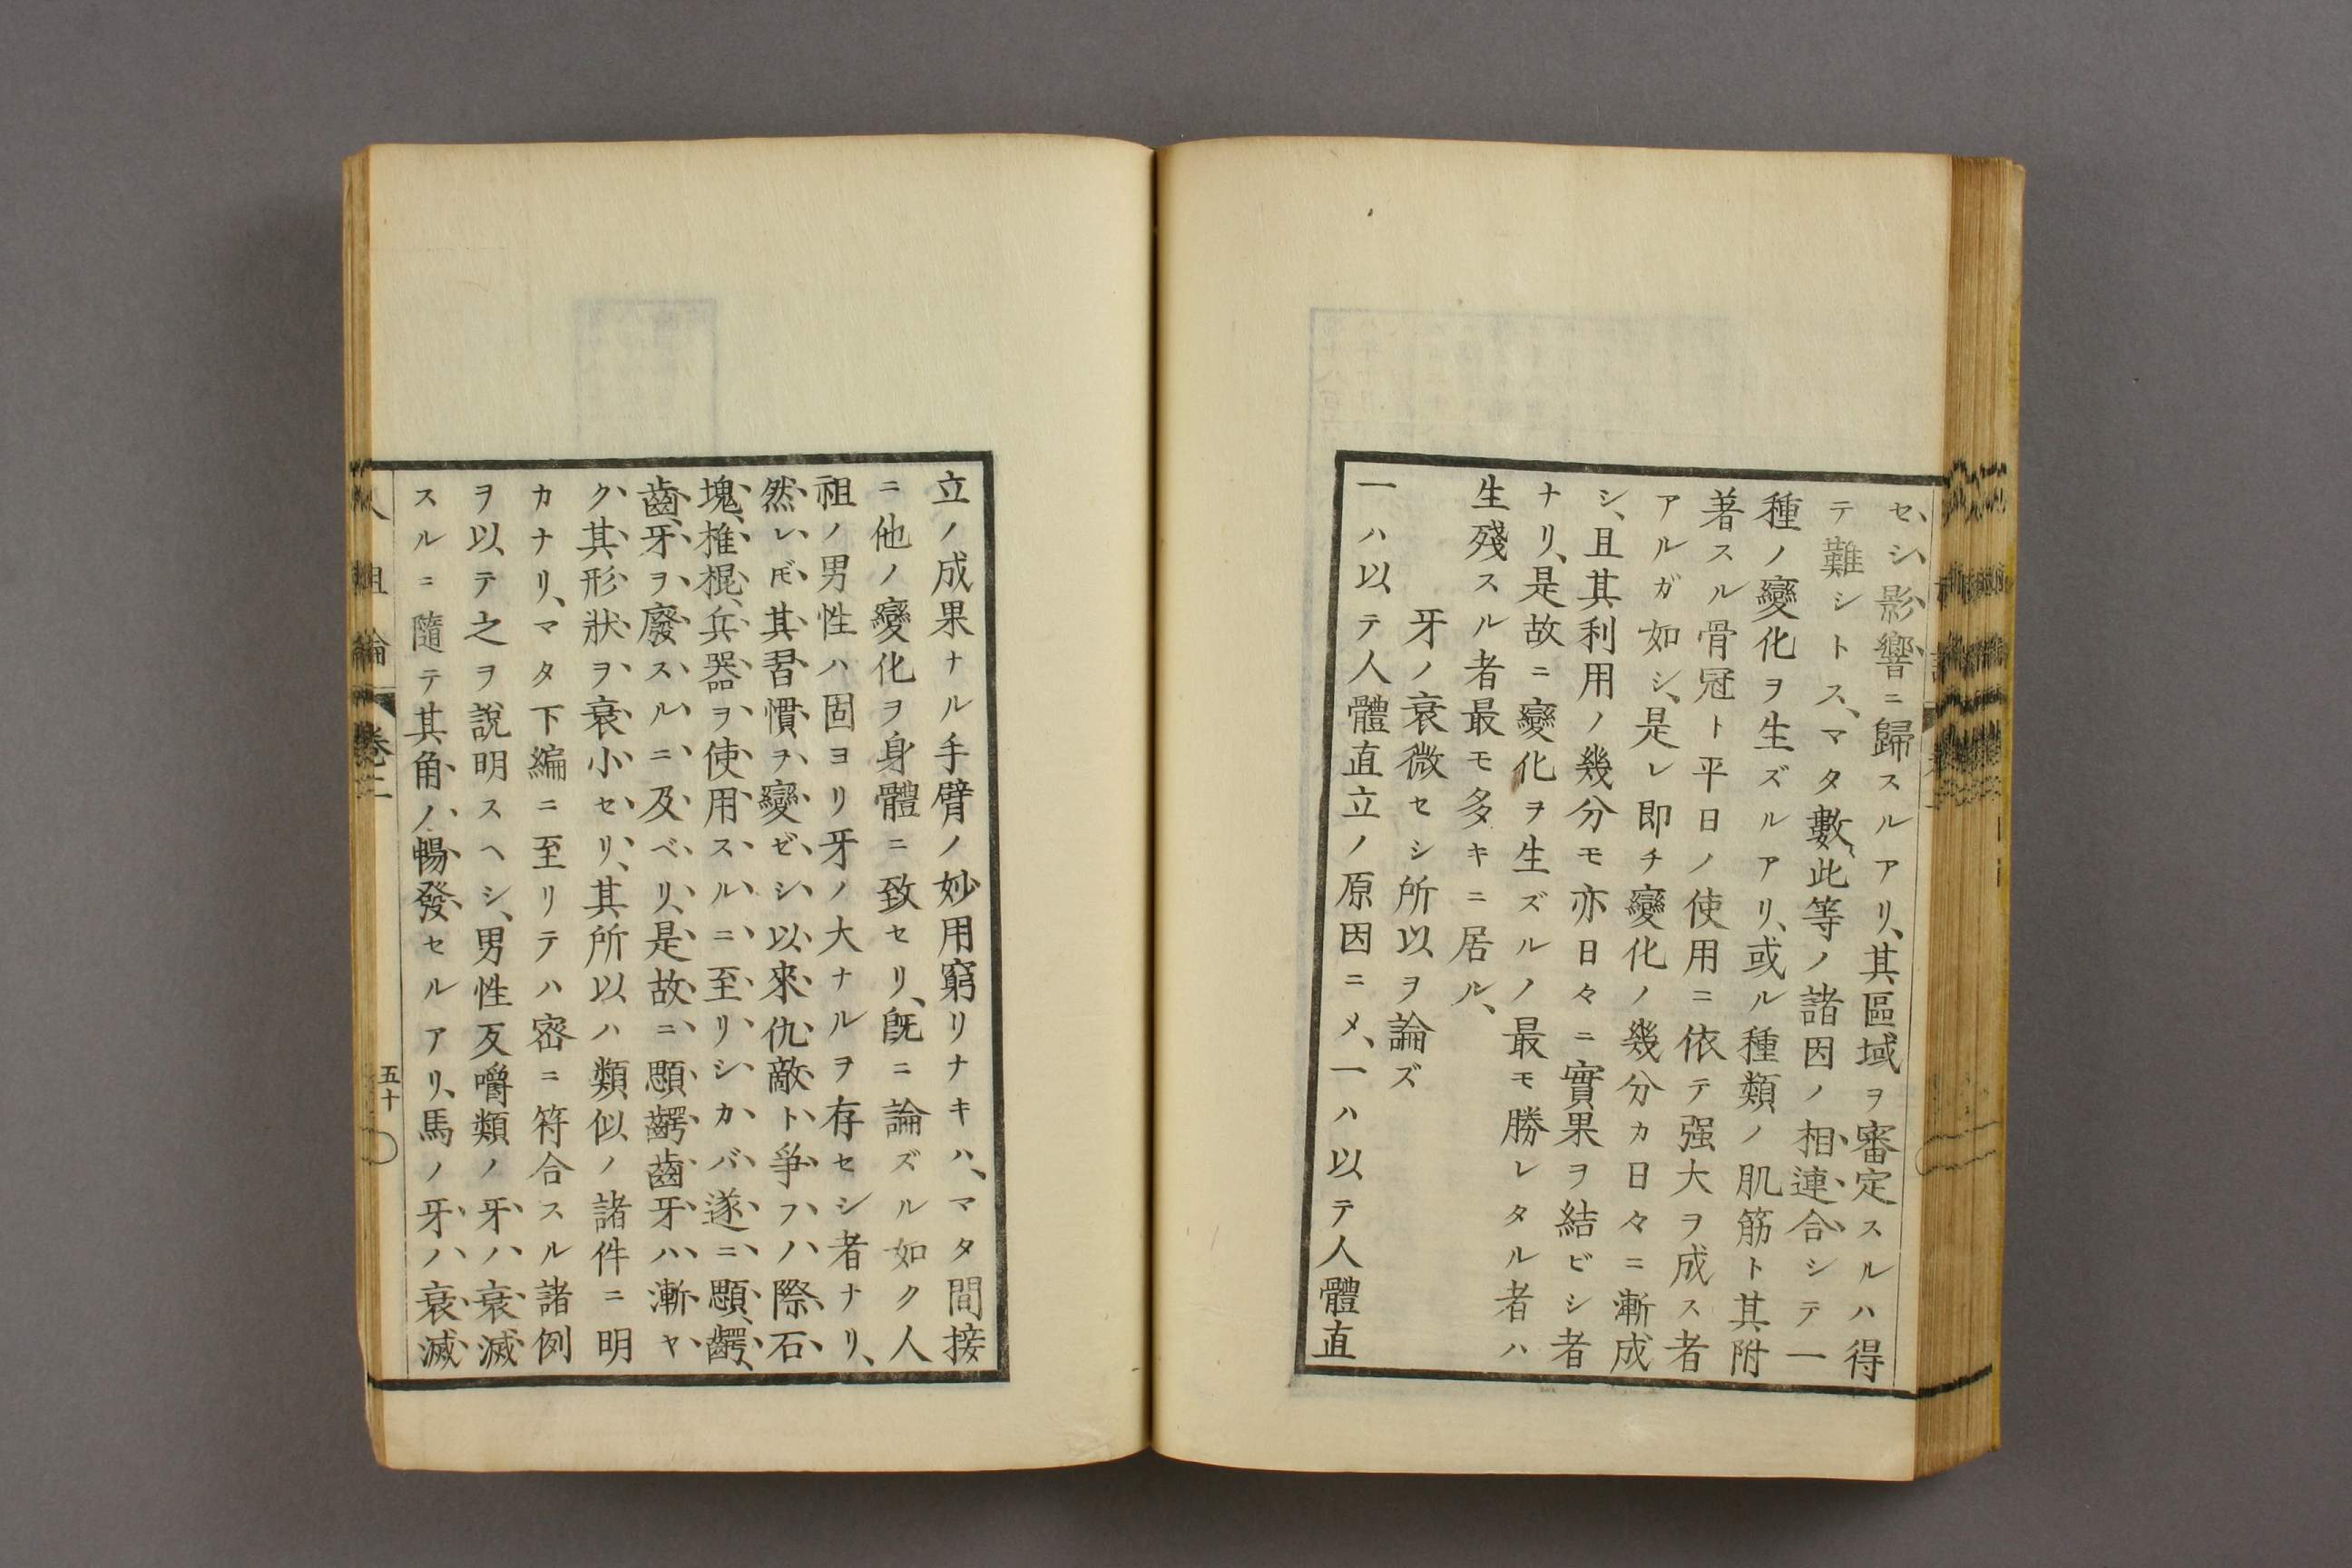 セシ影響ニ歸スルアリ、其區域ヲ審定スルハ得
テ難シトス、マタ數、此等ノ諸因ノ相連合シテ一
種ノ變化ヲ生ズルアリ、或ル種類ノ肌筋ト其附
著スル骨冠ト平日ノ使用ニ依テ强大ヲ成ス者
アルガ如シ、是レ即チ變化ノ幾分カ日々ニ漸成
シ、且其利用ノ幾分モ亦日々ニ實果ヲ結ビシ者
ナリ、是故ニ變化ヲ生ズルノ最モ勝レタル者ハ
生殘スル者最モ多キニ居ル、
牙ノ衰微セシ所以ヲ論ズ
一ハ以テ人體直立ノ原因ニメ、一ハ以テ人體直
立ノ成果ナル手臂ノ妙用窮リナキハ、マタ間接
ニ他ノ變化ヲ身體ニ致セリ、旣ニ論ズル如ク人
祖ノ男性ハ固ヨリ牙ノ大ナルヲ存セシ者ナリ、
然レ𪜈其習慣ヲ變ゼシ以來仇敵ト爭フハ際石
塊、椎棍、兵器ヲ使用スルニ至リシカバ遂ニ顋齶、
齒牙ヲ廢スルニ及ベリ、是故ニ顋齶齒牙ハ漸ヤ
ク其形狀ヲ衰小セリ、其所以ハ類似ノ諸件ニ明
カナリ、マタ下編ニ至リテハ密ニ符合スル諸例
ヲ以テ之ヲ說明スヘシ、男性反嚼類ノ牙ハ衰滅
スルニ隨テ其角ノ暢發セルアリ、馬ノ牙ハ衰滅
人祖論 卷二 五十